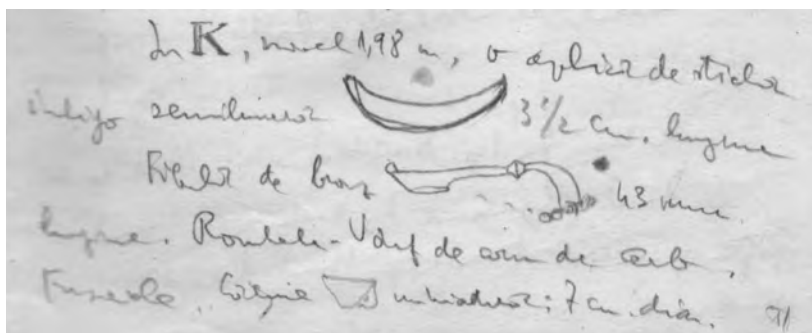 In K, nivel 1,98 m, o aplica de sticlă
indigo semilunară 3 1/2 cm. lungime
Fibula de bronz 43 mm.
lungime. Rondele. Vârf de corn de cerb,
Fusaiole, miniaturală: 7 cm. diam.